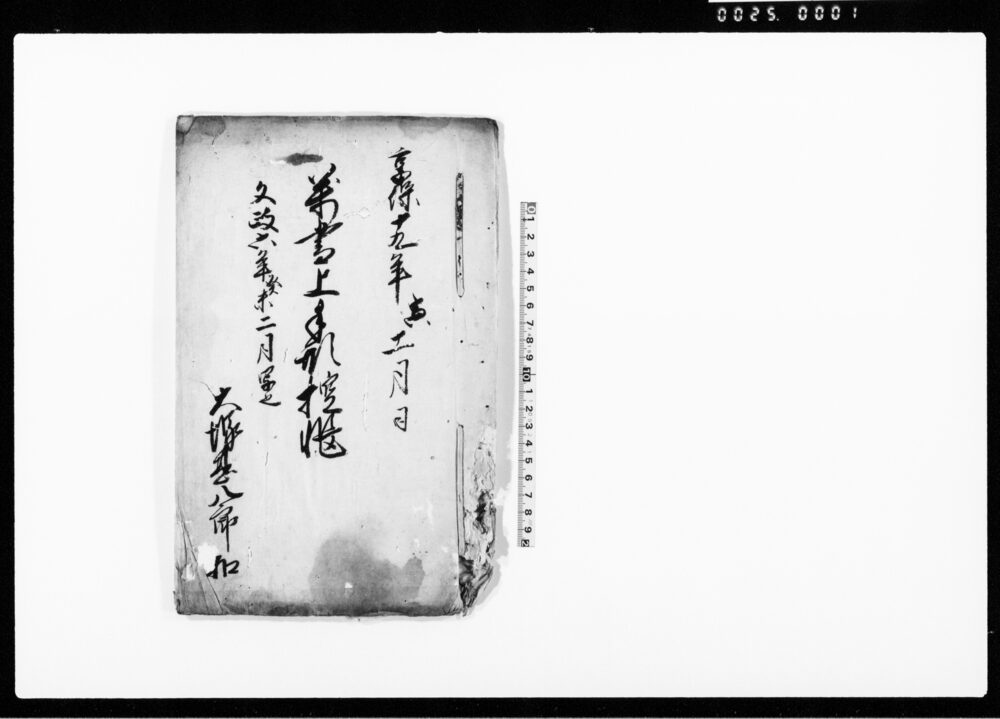 0025. 0001
享保十九年寅十一月日
萬書上手形控帳
文政六年癸未二月写之
大塚甚八郎扣
0 1 2 3 4 5 6 7 8 9 10 1 2 3 4 5 6 7 8 9 2